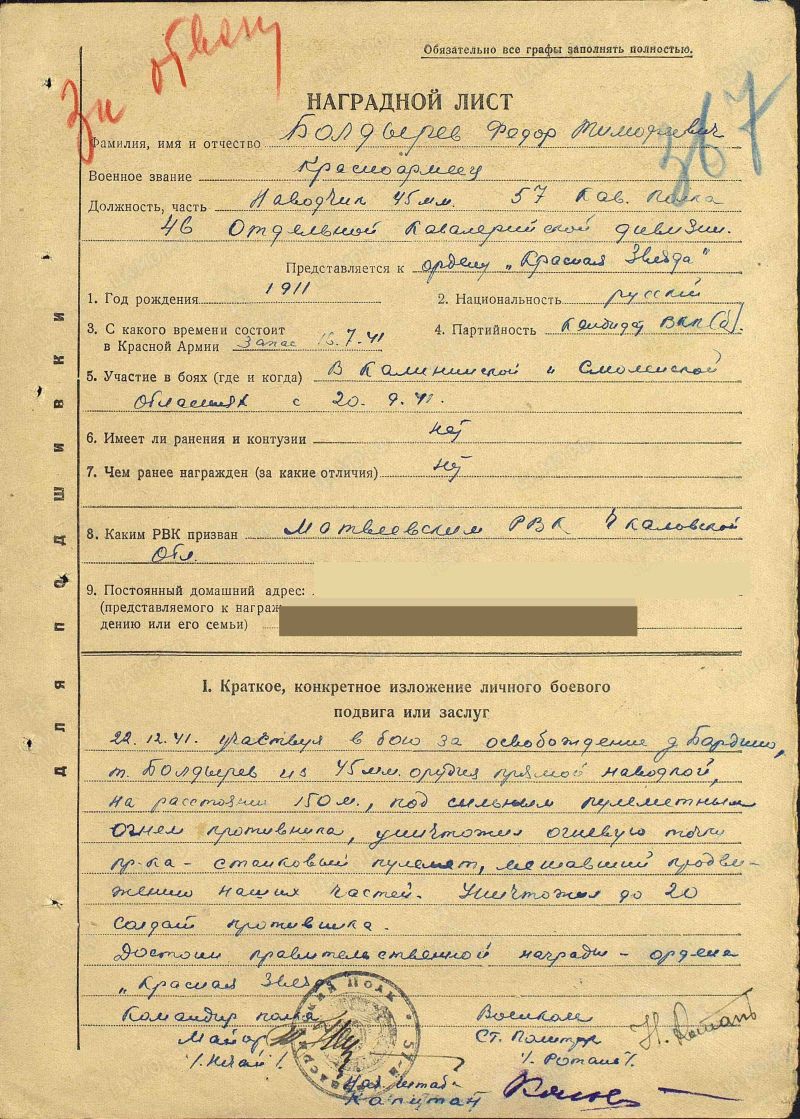 За отвагу
Обязательно все графы заполнять полностью.
367
НАГРАДНОЙ ЛИСТ
Фамилия, имя и отчество Болдырев Федор Тимофеевич
Военное звание Красноармеец
Должность, часть Наводчик 45 мм. 57 Кав. полка
46 Отдельной Кавалерийской дивизии.
Представляется к ордену „Красная Звезда"
1. Год рождения 1911 2. Национальность русский
3. С какого времени состоит
в Красной Армии Запас 16.7.41 4. Партийность Кандидат ВКП(б).
5. Участие в боях (где и когда) В Калининской и Смоленской
областях с 20. 9. 41.
6. Имеет ли ранения и контузии нет
7. Чем ранее награжден (за какие отличия) нет
8. Каким РВК призван Матвеевским РВК Чкаловской
Обл.
9. Постоянный домашний адрес:
(представляемого к награж
дению или его семьи)
Для подшивки
I. Краткое, конкретное изложение личного боевого
подвига или заслуг
22.12.41. участвуя в бою за освобождение д.
т. Болдырев из 45 мм. орудия прямой наводкой,
на расстоянии 150 м., под сильным пулеметным
огнем противника, уничтожил огневую точку
пр-ка – станковый пулемет, мешавший продви-
жению наших частей. Уничтожил до 20
солдат противника.
Достоин правительственной награды – ордена
„Красная Звезда
Командир полка Военком
Майор Ст. Политрук
/. /. /. Ротань /.
Нач. штаба
Капитан